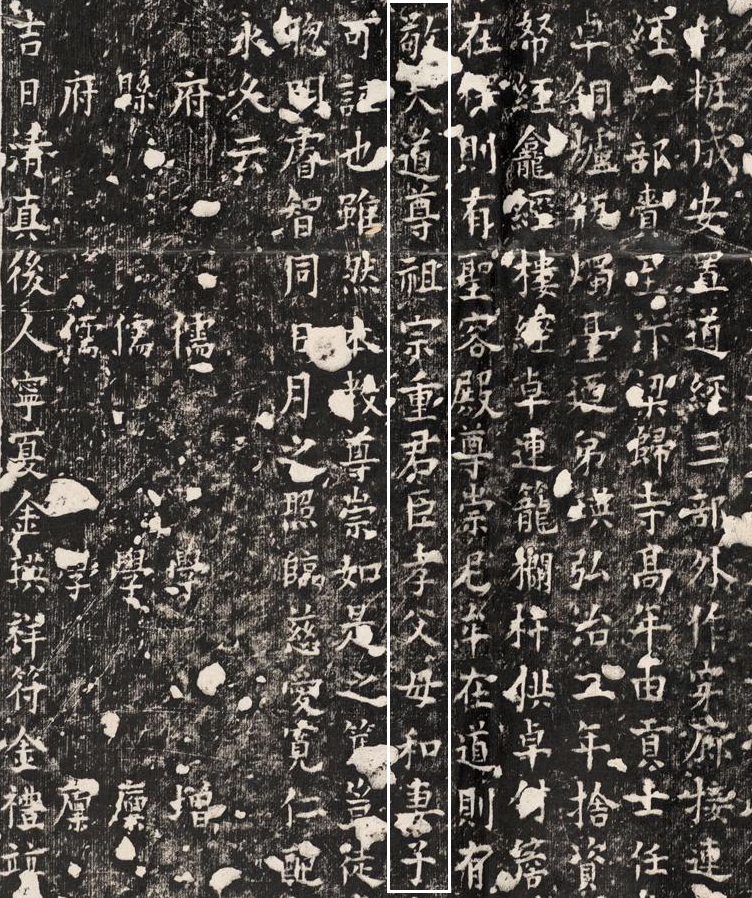 粧成安置道經三部外作穿廊接連
經一部齎至汴梁歸寺高年由貢士任
卓銅爐瓶燭臺逈弟瑛弘治二年捨資
經龕經樓經卓連籠欄杆供卓付簷
在釋則有聖容殿尊崇尼牟在道則有
敬天道尊祖宗重君臣孝父母和妻子
可訛也雖然本教尊崇如是之篤豈徒
聰明睿智同日月之照臨慈愛寬仁配
永久云
府儒學增
縣儒學廩
府儒學廩
吉日清真後人寧夏金瑛祥符金禮竝